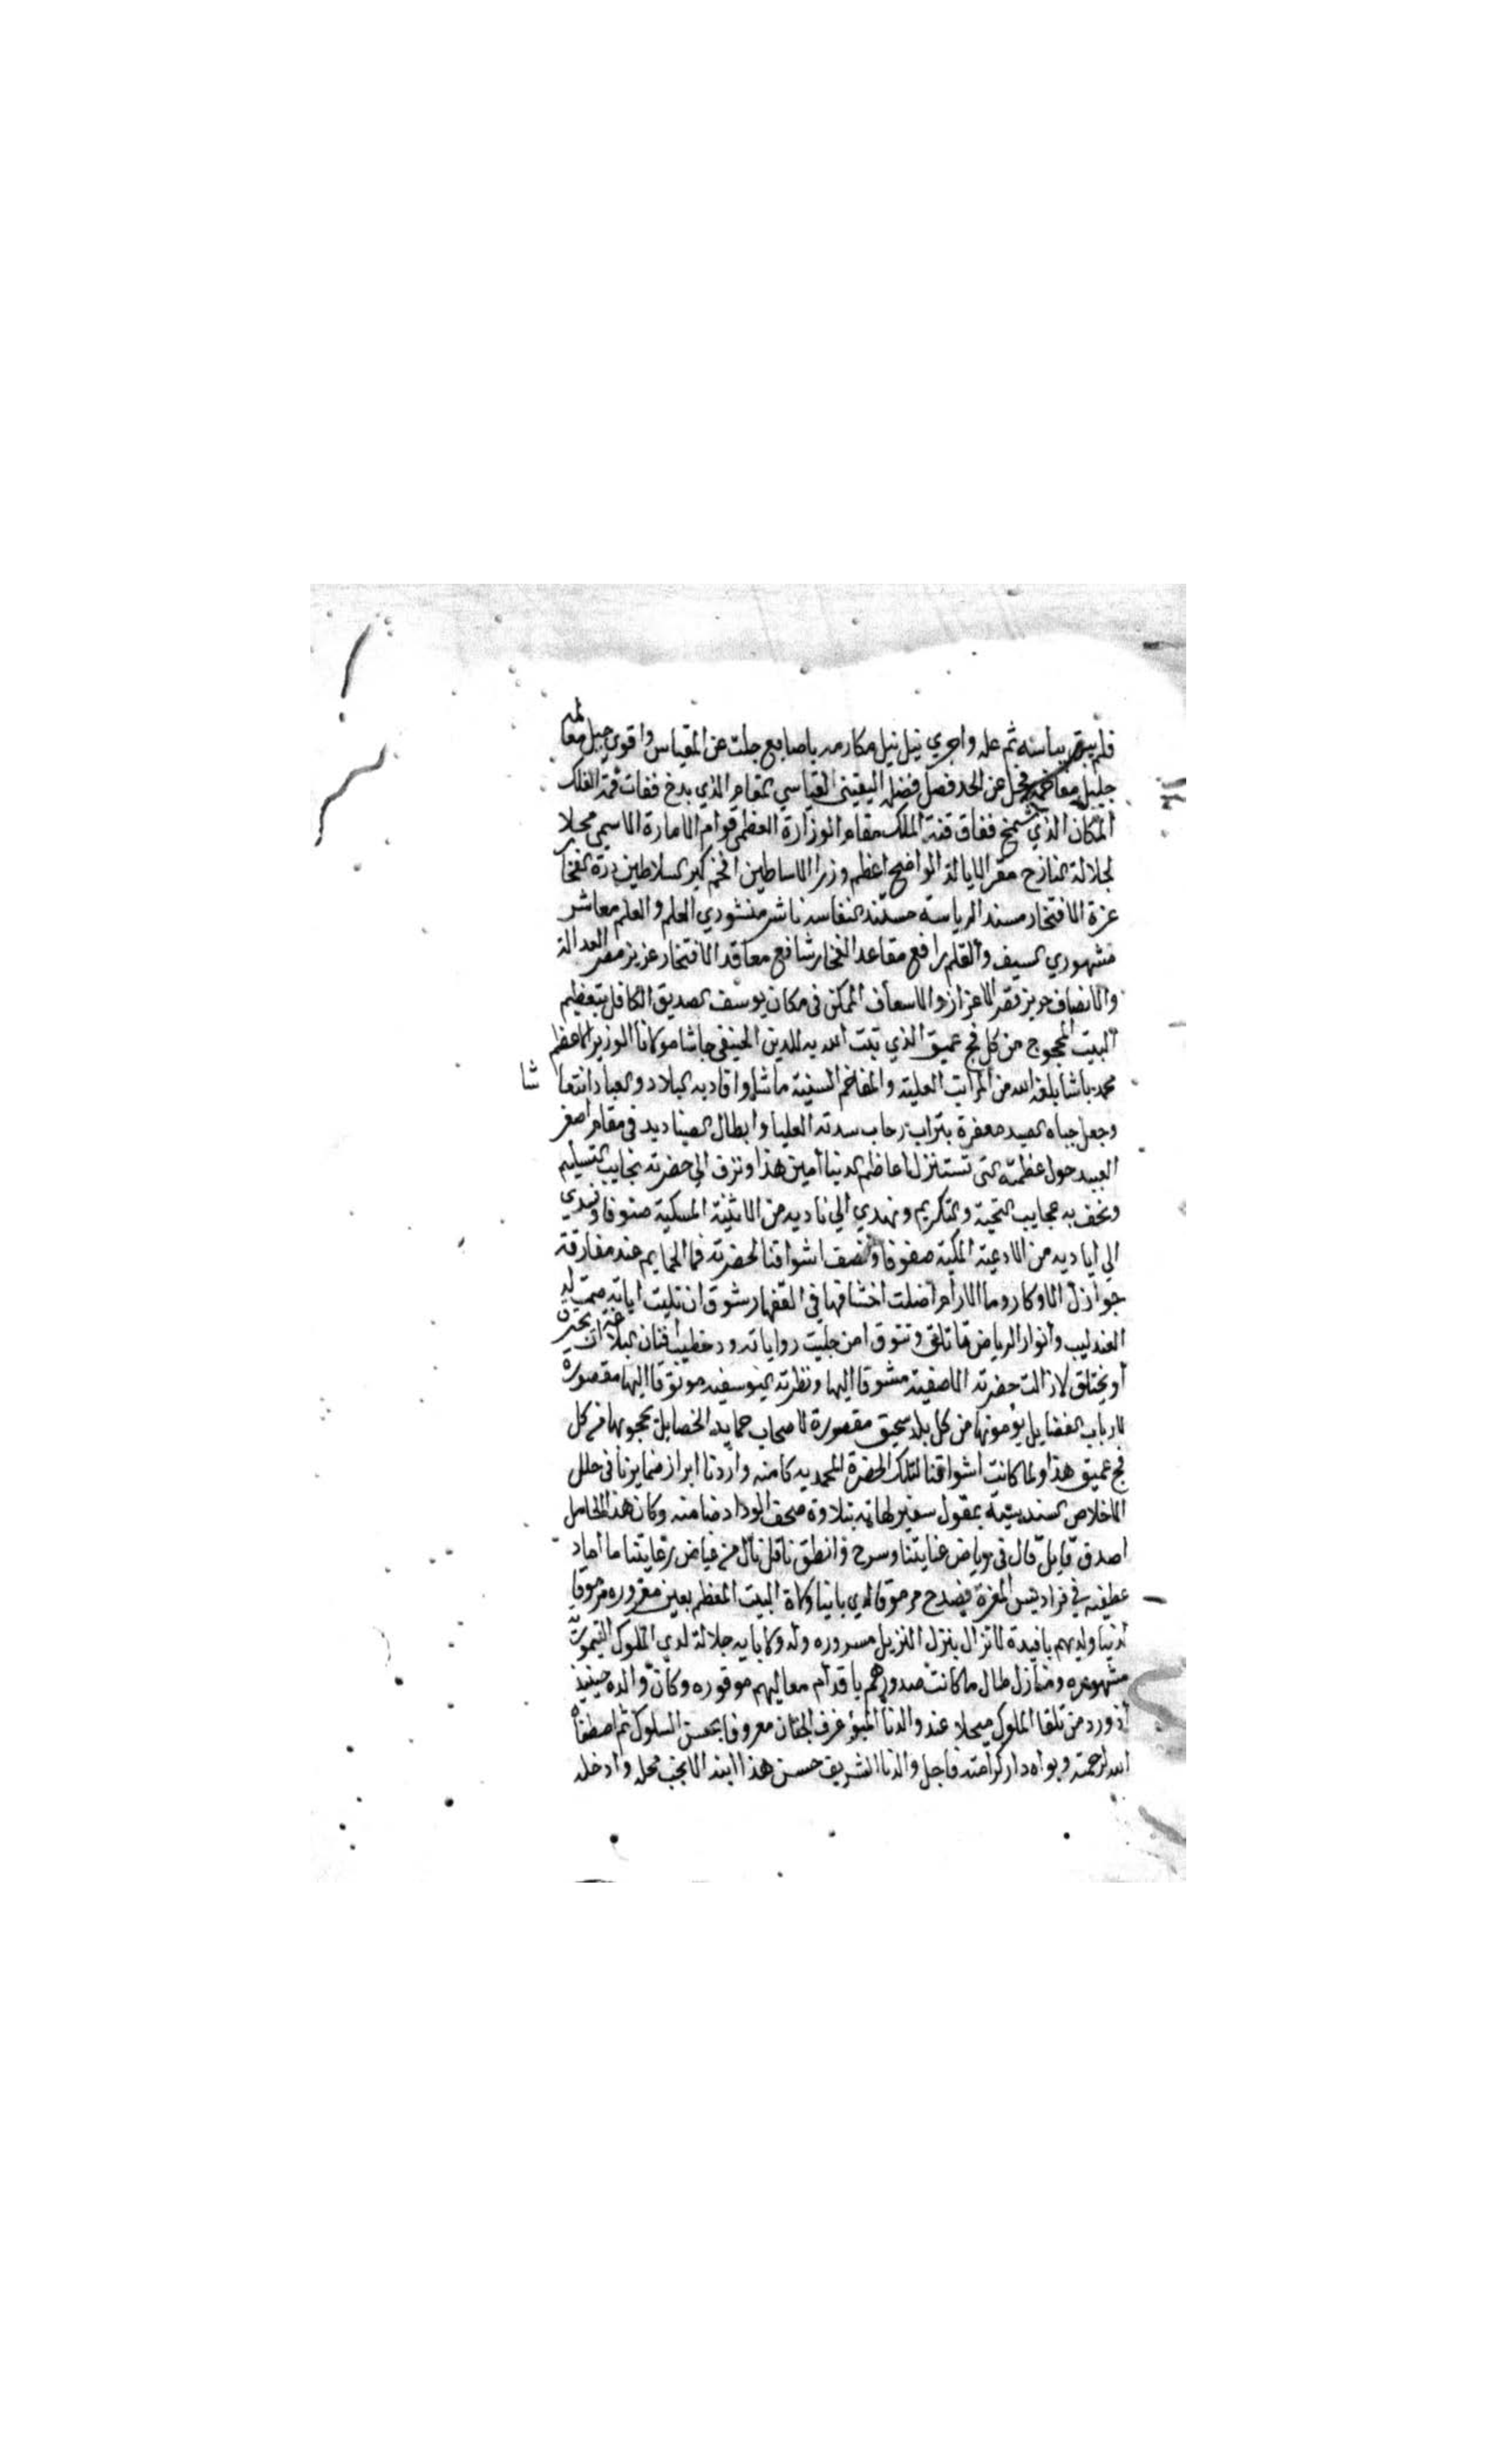 فلم بباسه ثم عله واجري نيل نيل مكارمه باصابع جلت عن المقياس واقوي جبل معالمه
جليل مفاخمه فجل عن الحد فصل فضله اليقيني القياسي المقام الذي بدخ ففات قمة الفلك
المكان الذي شمخ ففاق قنة الملك مقام الوزارة العظمي قوام الامارة الاسمي محلا
لجلالة النازح مقر الايالة الواضح اعظم وزرا الاساطين افخم كبرا السلاطين درة الفخار
عزة الافتخار مسند الرياسه مستند النفاسه ناشر منشوري العلم والعلم معاشر
مشهوري السيف والقلم رافع مقاعد الفخار شافع معاقد الافتخار عزيز مصر العدالة
والانصاف حريز قصر الاعزاز والاسعاف الممكن في مكان يوسف الصديق الكافل بتعظيم
البيت المحجوج من كل فج عميق الذي ثبت الله به للدين الحنيفي جاشا مولانا الوزير الاعظم
محمد باشا بلغه الله من المراتب العليه والمفاخم السنية ما شا وافاد به البلاد والعباد انتعاشا
وجعل جباه الصيد معفرة بتراب رحاب سدته العليا وابطال الصناديد في مقام اصغر
العبيد حول عظمته التي تستنزل اعاظم الدنيا امين هذا ونزف الي حضرته نجايب التسليم
ونحف به عجايب التحية والتكريم ونهدي الي ناديه من الاثنية المسكية صنوفا ونسدي
الي اياديه من الادعية المكية صفوفا ونصف اشواقنا لحضرته فما الحمايم عند مفارقة
جوازل الاوكار وما الارام اضلت اخشافها في القفار بشوق ان تليت اياته صمت له
العندليب وانوار الرياض ما تالق وتتوق امن جليت رواياته ود خطيب افنان البلاغة ان يحترق
أو يختلق لازالت حضرته الاصفية مشوقا اليها ونظرته اليوسفيه موتوقا اليها مقصورة
لارباب الفضايل يؤمونها من كل بلد سحيق مقصورة لاصحاب حمايد الخصايل يحجونها من كل
فج عميق هذا ولما كانت اشواقنا لتلك الحضرة المحمديه كامنه واردنا ابراز ضمايرنا في حلل
الاخلاص السندسية بمقول سفير لهاته بتلاوة صحف الوداد ضامنه وكان هذا الحامل
اصدق قايل قال في رياض عنايتنا وسرح وانطق ناقل نال من غياض رعايتنا ما اماد
عطفه في فراديس المعزة مرموقا لدي بابنا ولاة البيت المعظم بعين مقروره مرموقا
لدينا ولديهم بافيدة لا تزال بنزل النزيل مسروره وله ولابايه جلالة لدي الملوك
مشهوره ومنازل طال ما كانت صدورهم باقدام معاليهم موقوره وكان والده حينيذ
اذ ورد من تلقا الملوك مبجلا عند والدنا المبوء غرف الجنان معروفا بحسن السلوك ثم اصطفاه
الله لرحمته وبواه دار كرامته فاجل والدنا الشريف حسن هذا ابنه الانجب محله وادخله